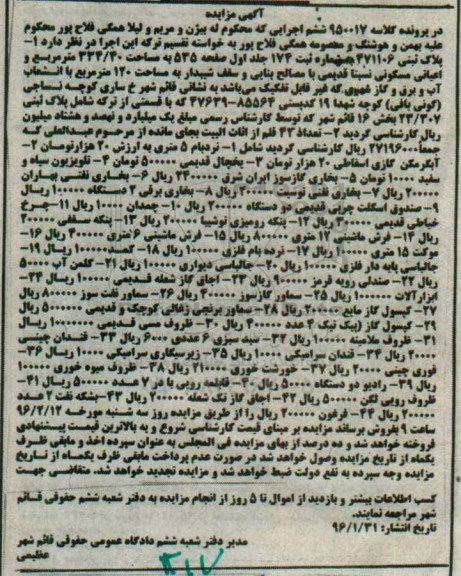 آگهی مزایده
در پرونده کلاسه ۹۵۰۰۱۷ ششم اجرایی که محکوم له بیژن و مریم و لیلا همگی فلاح پور محکوم
علیه بهمن و هوشنگ و معصومه همگی فلاح پور به خواسته تقسیم ترکه این اجرا در نظر دارد ۱-
پلاک ثبتی ۴۷۱۱۰۶ شماره ثبت ۱۷۴ جلد اول صفحه ۵۳۵ به مساحت ۳۳۴/۴۰ مترمربع و
اعیانی مسکونی نسبتا قدیمی با مصالح بنایی و سقف شیبدار به مساحت ۱۲۰ مترمربع با انشعاب
آب و برق و گاز شهری که غیر قابل تفکیک می‌باشد به نشانی قائم شهر خ ساری کوچه نساجی
(گونی بافی) کوچه شهدا ۱۹ کدپستی ۸۵۵۶۴-۴۷۶۳۹ که با قسمتی از ترکه شامل پلاک ثبتی
۲۳/۷۰۷ بخش ۱۶ قائم شهر که توسط کارشناس رسمی مبلغ یک میلیارد و نهصد و هشتاد میلیون
ریال کارشناسی گردید ۲- تعداد ۴۳ قلم از اثاث البیت بجای مانده از مرحوم عبدالعلی که
جمعا ۲۷۱۹۶۰۰۰ ریال کارشناسی گردید شامل ۱- نردبام ۵ متری به ارزش ۲۰ هزارتومان ۲-
آبگرمکن گازی اسقاطی ۲۰ هزار تومان ۳- یخچال قدیمی ۵۰۰۰۰ تومان ۴- تلویزیون سیاه و
سفید ۱۰۰۰۰ تومان ۵- بخاری گازسوز ایران شرق ۲۴۰۰۰۰۰ ریال ۶- بخاری نفتی بهاران
۲۰۰۰۰۰ ریال ۷- بخاری نفتی توسیت ۲۰۰۰۰۰ ریال ۸- بخاری برقی ۲ دستگاه ۱۰۰۰۰۰ ریال
۹- صندوق اسکلت چوبی قدیمی دو دستگاه ۲۰۰۰۰۰ ریال ۱۰- چمدان ۱۰۰۰۰۰ ریال ۱۱- چرخ
خیاطی قدیمی ۳۰۰۰۰۰ ریال ۱۲- پنکه رومیزی توشیبا ۲۰۰۰۰۰ ریال ۱۳- پنکه سقفی ۲۰۰۰۰۰
ریال ۱۴- فرش ماشینی ۱۲ متری ۸۰۰۰۰۰ ریال ۱۵- فرش ماشینی ۶ متری ۴۰۰۰۰۰ ریال ۱۶-
موکت ۱۵ متری ۱۰۰۰۰۰ ریال ۱۷- نرده بام فلزی ۱۰۰۰۰۰ ریال ۱۸- کمد ۱۰۰۰۰۰ ریال ۱۹-
جالباسی پایه دار فلزی ۱۰۰۰۰۰ ریال ۲۰- جالباسی دیواری ۱۰۰۰۰۰ ریال ۲۱- کلمن آب ۵۰۰۰۰
ریال ۲۲- صندلی رویه قرمز ۹۰۰۰۰۰ ریال ۲۳- اجاق گاز شعله قدیمی ۱۰۰۰۰۰ ریال ۲۴-
ابزارآلات ۱۰۰۰۰۰۰ ریال ۲۵- سماور گازسوز ۴۰۰۰۰۰ ریال ۲۶- سماور نفت سوز ۸۰۰۰۰۰ ریال
۲۷- کپسول گاز مایع ۲۰۰۰۰۰ ریال ۲۸- سماور برنجی زغالی کوچک و قدیمی ۵۰۰۰۰۰ ریال
۲۹- کپسول گاز (پیک نیک) ۴ عدد ۴۰۰۰۰۰ ریال ۳۰- ظروف مسی قدیمی ۱۰۰۰۰۰۰ ریال
۳۱- ظروف ملامینه ۱۰۰۰۰۰ ریال ۳۲- سبد سبزی ۶ عددی ۶۰۰۰۰ ریال ۳۳- قندان چینی
۲۰۰۰۰ ریال ۳۴- قندان سرامیکی ۱۰۰۰۰ ریال ۳۵- زیرسیگاری سرامیکی ۱۰۰۰۰ ریال ۳۶-
قوری چینی ۲۰۰۰۰ ریال ۳۷- خورشت خوری ۲۱۰۰۰۰ ریال ۳۸- ظروف میوه خوری ۱۰۰۰۰۰
ریال ۳۹- رادیو دو دستگاه ۵۰۰۰۰ ریال ۴۰- قابلمه رویی با در ۷ عدد ۵۰۰۰۰۰ ریال ۴۱-
ظروف رویی لگن ۵۰۰۰۰۰ ریال ۴۲- اجاق گاز تک شعله ۲۰۰۰۰۰ ریال ۴۳- بشکه نفت ۲ عدد
۲۰۰۰۰۰ ریال ۴۴- فرغون ۲۰۰۰۰۰ ریال را از طریق مزایده روز سه شنبه مورخه ۹۶/۲/۱۲
ساعت ۹ بفروش برساند مزایده بر مبنای قیمت کارشناسی شروع و به بالاترین قیمت پیشنهادی
فروخته خواهد شد و ده درصد از بهای مزایده فی المجلس به عنوان سپرده اخذ و مابقی ظرف
یکماه از تاریخ مزایده وصول خواهد شد در صورت عدم پرداخت مابقی ظرف یکماه از تاریخ
مزایده وجه سپرده به نفع دولت ضبط خواهد شد و مزایده تجدید خواهد شد. متقاضی جهت
کسب اطلاعات بیشتر و بازدید از اموال تا ۵ روز از انجام مزایده به دفتر شعبه ششم حقوقی قائم
شهر مراجعه نمایند.
تاریخ انتشار: ۹۶/۱/۳۱
مدیر دفتر شعبه ششم دادگاه عمومی حقوقی قائم شهر
عظیمی